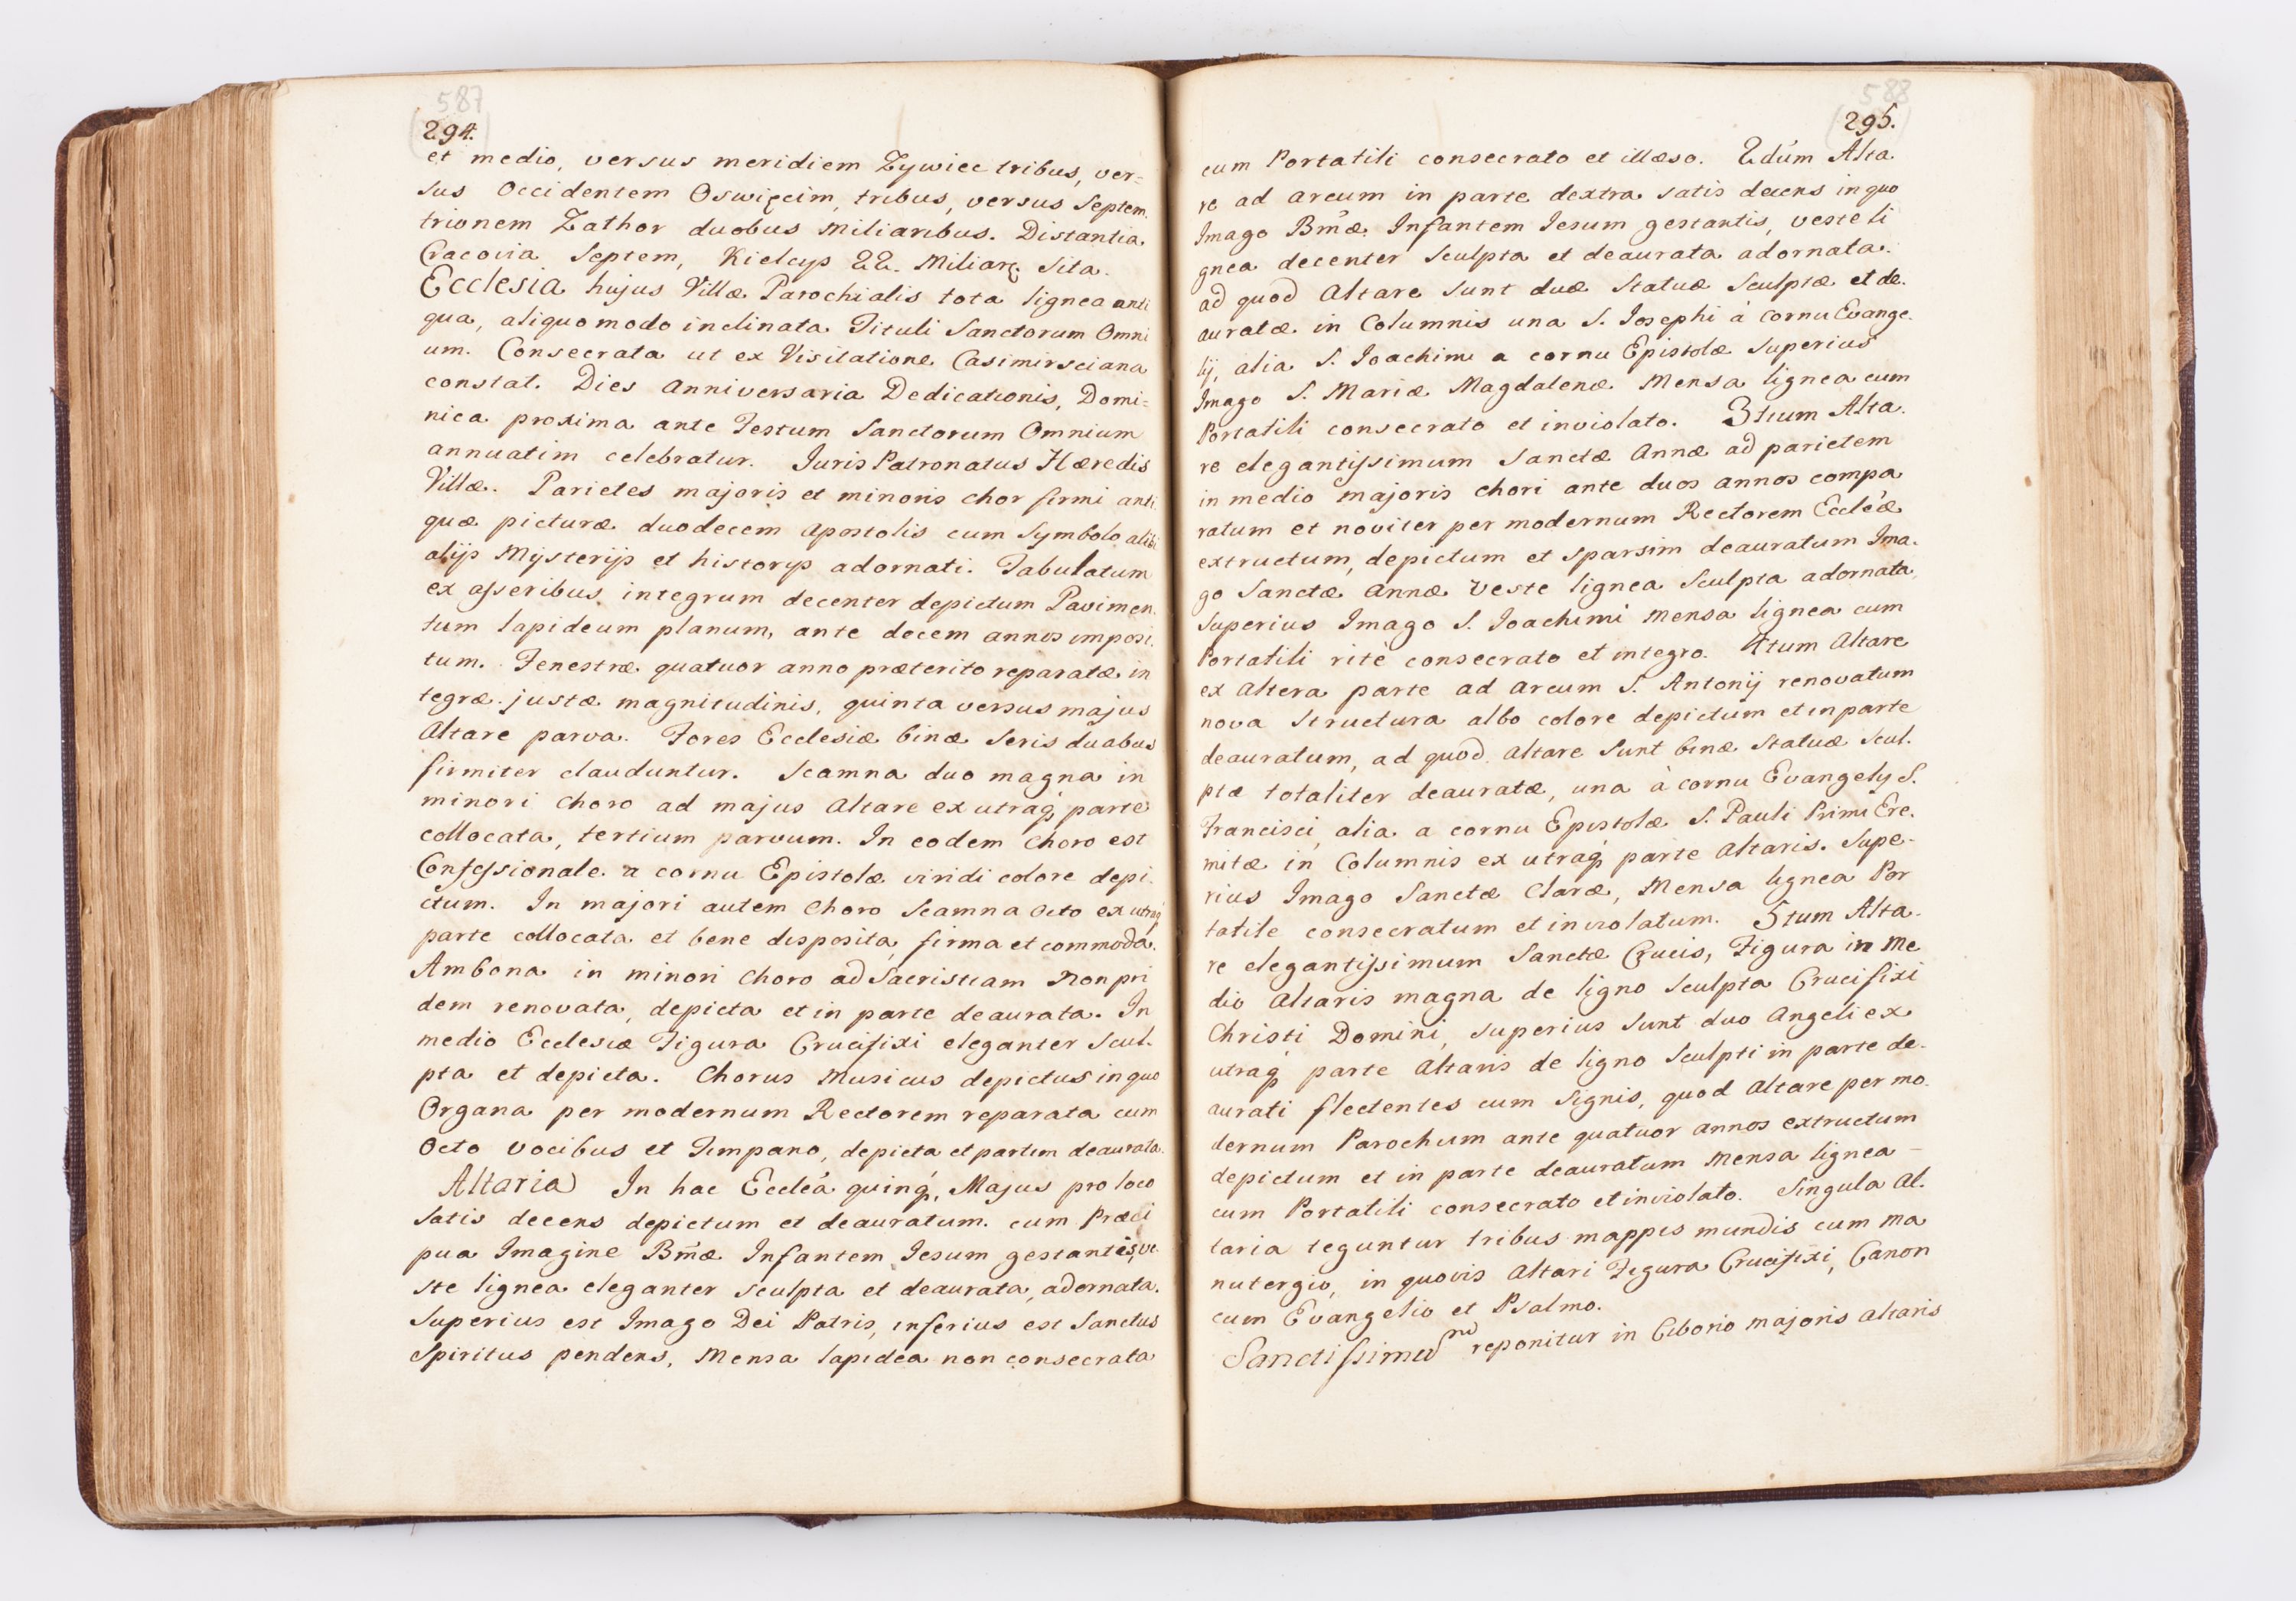 587
294.
et medio, versus meridiem Zywiec tribus, ver=
sus Occidentem Oswięcim, tribus, versus Septem.
trionem Zathor duobus Miliaribus. Distantia
Cracovia Septem, Kielcys 22. Miliarę. Sita.
Ecclesia hujus Villæ Parochialis tota lignea anti
qua, aliquomodo inclinata Tituli Sanctorum Omni
um. Consecrata ut ex Visitatione Casimirsciana
constat. Dies anniversaria Dedicationis, Domi=
nica proxima ante Festum Sanctorum Omnium
annuatim celebratur. Juris Patronatus Hæredis
Villæ. Parietes majoris et minoris chor firmi anti
quæ picturæ duodecem apostolis cum Symbolo alibi
alijs Mÿsterijs et historijs adornati. Tabulatum
ex asseribus integrum decenter depictum Pavimen.
tum lapideum planum, ante decem annos imposi.
tum. Fenestræ quatuor anno præterito reparatæ in
tegræ justæ magnitudinis, quinta versus majus
Altare parva. Fores Ecclesiæ binæ seris duabus
firmiter clauduntur. Scamna duo magna in
minori choro ad majus altare ex utraq́ parte
collocata, tertium parvum. In eodem choro est
Confessionale a cornu Epistolæ viridi colore depi.
ctum. In majori autem choro Scamna octo ex utraq́
parte collocata et bene disposita, firma et commoda.
Ambona in minori choro ad Sacristiam non pri
dem renovata, depicta et in parte deaurata. In
medio Ecclesiæ Figura Crucifixi eleganter Scul.
pta et depicta. Chorus Musicus depictus in quo
Organa per modernum Rectorem reparata cum
Octo vocibus et Timpano, depicta et partim deaurata.
Altaria In hac Eccleá quinq́, Majus pro loco
satis decens depictum et deauratum. cum Præci
pua Imagine Bm̃æ Infantem Jesum gestantis, ve.
ste lignea eleganter sculpta et deaurata, adornata.
Superius est Imago Dei Patris, inferius est Sanctus
Spiritus pendens, Mensa lapidea non consecrata
588
295.
cum Portatili consecrato et illæso. 2dúm Alta
re ad arcum in parte dextra satis decens in quo
Imago Bm̃æ Infantem Jesum gestantis, veste li
gnea decenter sculpta et deaurata adornata.
ad quod Altare sunt duæ Statuæ Sculptæ et de.
auratæ in Columnis una S. Josephi à cornu Evange.
lij, alia S. Joachimi a cornu Epistolæ Superius
Imago S. Mariæ Magdalenæ Mensa lignea cum
Portatili consecrato et inviolato. 3tium Alta.
re elegantissimum Sanctæ Annæ ad parietem
in medio majoris chori ante duos annos compa
ratum et noviter per modernum Rectorem Eccléæ
extructum, depictum et sparsim deauratum Ima.
go Sanctæ Annæ veste lignea Sculpta adornata
Superius Imago S. Joachimi mensa lignea cum
Portatili ritè consecrato et integro. 4tum Altare
ex altera parte ad arcum S. Antonij renovatum
nova structura albo colore depictum et in parte
deauratum, ad quod altare sunt binæ statuæ scul.
ptæ totaliter deauratæ, una à cornu Evangelij S.
Francisci, alia a cornu Epistolæ S. Pauli Primi Ere.
mitæ in Columnis ex utraq́ parte altaris. Supe.
rius Imago Sanctæ Claræ, Mensa lignea Por
tatile consecratum et inviolatum. 5tum Alta.
re elegantissimum Sanctæ Crucis, Figura in me
dio altaris magna de ligno sculpta Crucifixi
Christi Domini, superius sunt duo Angeli ex
utraq́ parte Altaris de ligno Sculpti in parte de.
aurati flectentes cum signis, quod altare per mo.
dernum Parochum ante quatuor annos extructum
depictum et in parte deauratum mensa lignea –
cum Portatili consecrato et inviolato. Singula al.
taria teguntur tribus mappis mundis cum ma
nutergio, in quovis altari Figura Crucifixi, Canon
cum Evangelio et Psalmo.
Sanctissimum reponitur in Ciborio majoris altaris